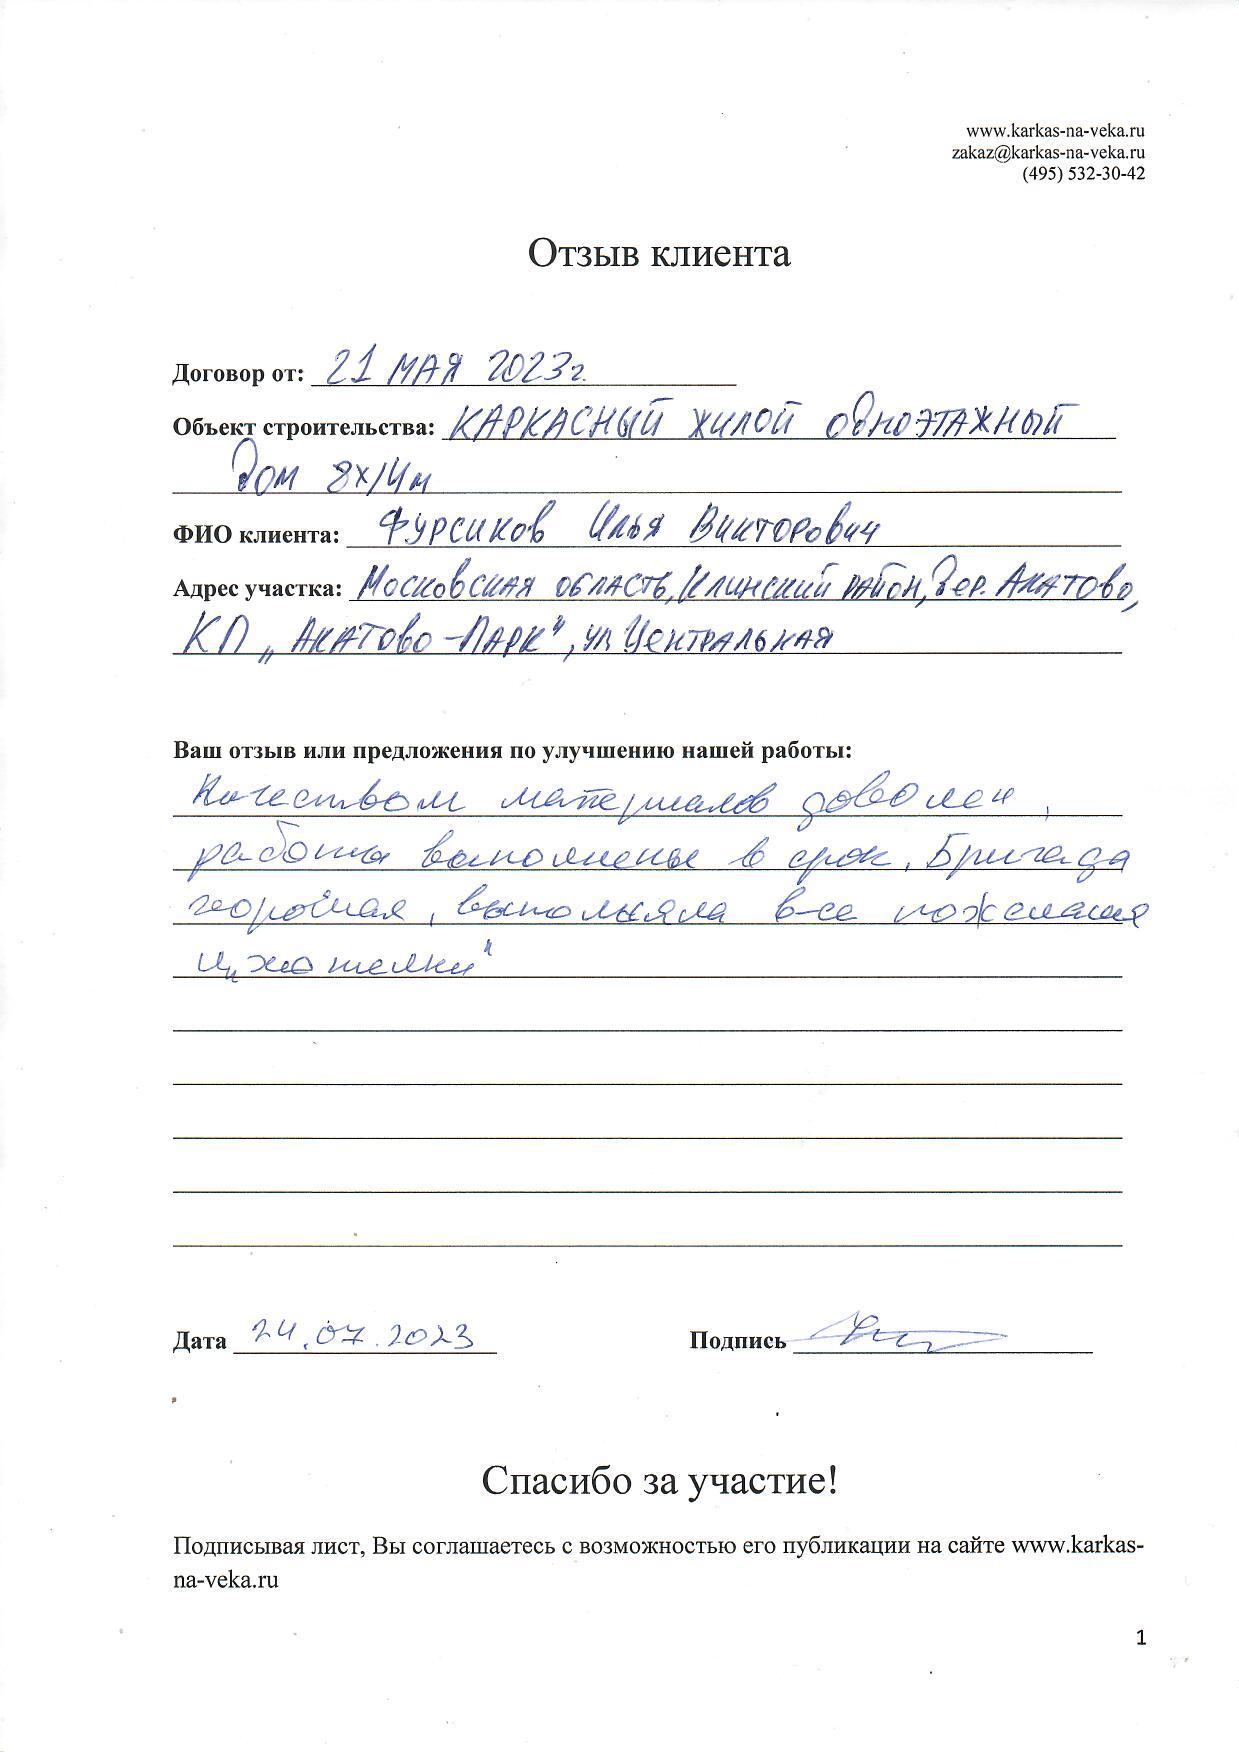 www.karkas-na-veka.ru
zakaz@karkas-na-veka.ru
(495) 532-30-42
Отзыв клиента
Договор от: 21 мая 2023г.
Объект строительства: КАРКАСНЫЙ ЖИЛОЙ ОДНОЭТАЖНЫЙ
ДОМ 8х14м
ФИО клиента: Фурсиков Илья Викторович
Адрес участка: Московская область, Клинский район, дер. Акатово,
КП „Акатово-Парк", ул Центральная
Ваш отзыв или предложения по улучшению нашей работы:
Качеством материалов доволен,
работы выполнены в срок, Бригада
выполняла все пожелания
и „хотелки"
Дата 24.07.2023 Подпись
Спасибо за участие!
Подписывая лист, Вы соглашаетесь с возможностью его публикации на сайте www.karkas-
na-veka.ru
1